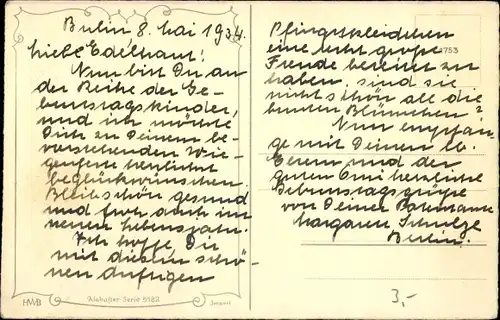 Berlin 8. Mai 1934.
Liebe Edeltraut!
Nun bist Du an
der Reihe der Ge-
burtstagskinder,
und ich möchte
Dich zu Deinem be-
vorstehenden Wie-
genfeste herzlichst
beglückwünschen.
Bleib schön gesund
und froh auch im
neuen Lebensjahr.
Ich hoffe, Dir
mit diesen schö-
nen duftigen
HWB
Alabaster Serie 5183
Pfingstkleidchen
eine recht große
3753
Freude bereitet zu
haben, sind sie
nicht schön all die
bunten Blümchen?
Nun empfan-
ge mit Deinen lb.
Eltern und der
guten Omi herzliche
Geburtstagsgrüße
von Deiner Patentante
Margarete Schulze
Berlin.
3,-